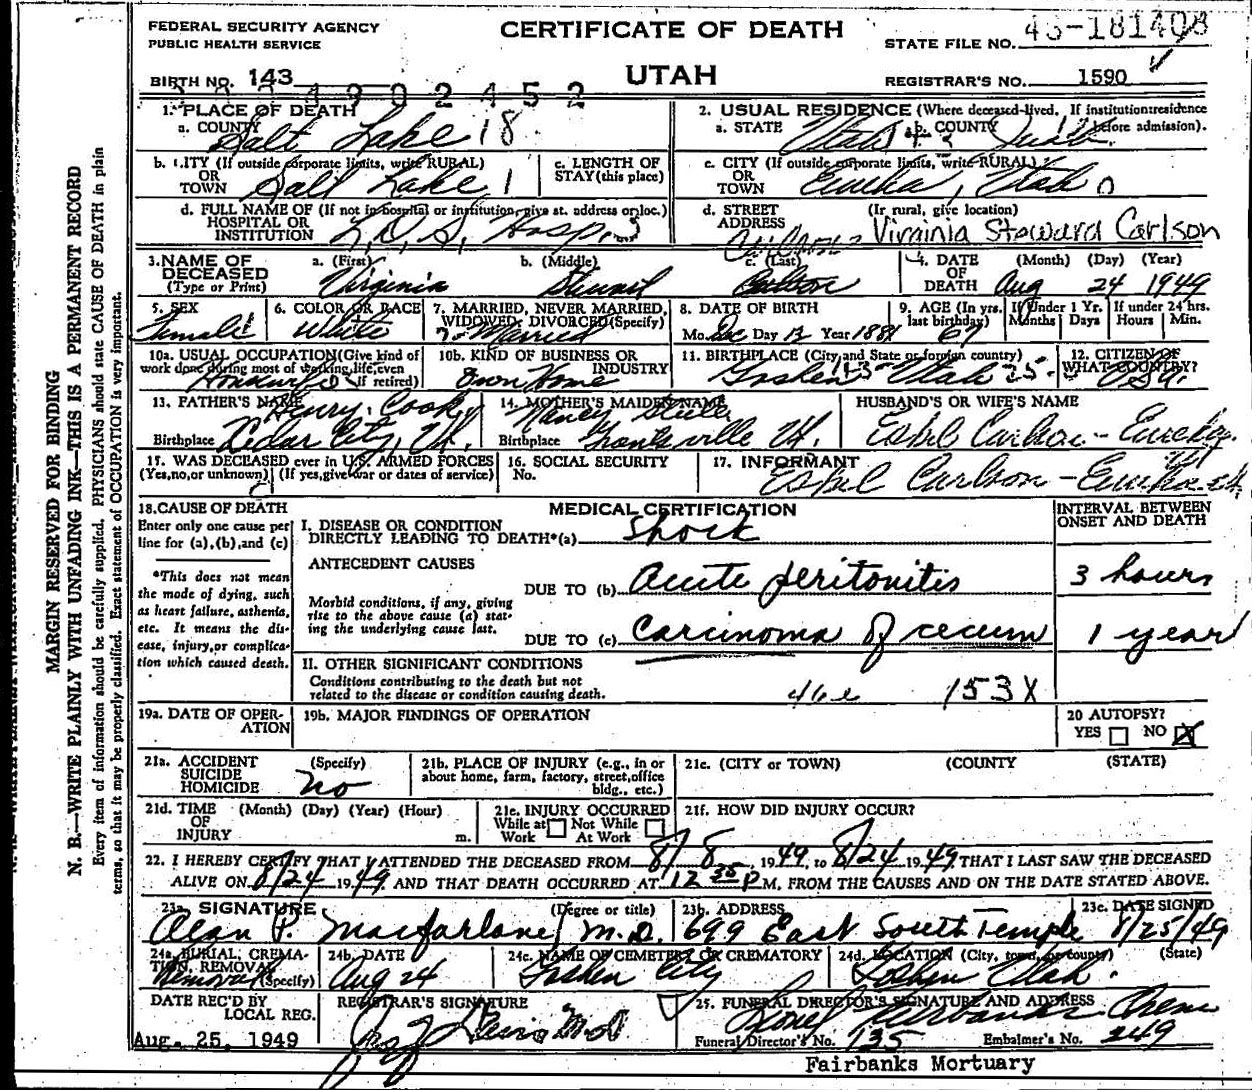 FEDERAL SECURITY AGENCY
PUBLIC HEALTH SERVICE
CERTIFICATE OF DEATH
STATE FILE NO. 43-181408
BIRTH NO. 143
UTAH
REGISTRAR'S NO. 1590
1902452
1. PLACE OF DEATH
a. COUNTY Salt Lake 18
2. USUAL RESIDENCE (Where deceased lived. If institution: residence before admission).
a. STATE Utah b. COUNTY Juab
b. CITY (If outside corporate limits, write RURAL)
OR TOWN Salt Lake 1
c. LENGTH OF STAY (this place)
c. CITY (If outside corporate limits, write RURAL)
OR TOWN Eureka, Utah 0
d. FULL NAME OF (If not in hospital or institution, give st. address or loc.)
HOSPITAL OR INSTITUTION L.D.S. Hosp.
d. STREET ADDRESS (If rural, give location)
Virginia Steward Carlson
3. NAME OF DECEASED (Type or Print)
a. (First) Virginia b. (Middle) c. (Last) Carlson
4. DATE OF DEATH (Month) (Day) (Year) Aug 24 1949
5. SEX Female
6. COLOR OR RACE White
7. MARRIED, NEVER MARRIED, WIDOWED, DIVORCED (Specify) Married
8. DATE OF BIRTH Mo. Dec Day 12 Year 1881
9. AGE (In yrs. last birthday) 67
If Under 1 Yr. Months Days
If under 24 hrs. Hours Min.
10a. USUAL OCCUPATION (Give kind of work done during most of working life, even if retired) Housewife
10b. KIND OF BUSINESS OR INDUSTRY Own Home
11. BIRTHPLACE (City and State or foreign country) Goshen Utah
12. CITIZEN OF WHAT COUNTRY? USA.
13. FATHER'S NAME Henry Cook
Birthplace Cedar City, Ut.
14. MOTHER'S MAIDEN NAME Nancy Steele
Birthplace Grantsville Ut.
HUSBAND'S OR WIFE'S NAME
Esbel Carlson - Eureka
15. WAS DECEASED ever in U.S. ARMED FORCES
(Yes, no, or unknown) (If yes, give war or dates of service)
16. SOCIAL SECURITY No.
17. INFORMANT
Esbel Carlson - Eureka Ut.
18. CAUSE OF DEATH
Enter only one cause per line for (a), (b), and (c)
*This does not mean the mode of dying, such as heart failure, asthenia, etc. It means the disease, injury, or complication which caused death.
MEDICAL CERTIFICATION
INTERVAL BETWEEN ONSET AND DEATH
I. DISEASE OR CONDITION DIRECTLY LEADING TO DEATH*(a) Shock
ANTECEDENT CAUSES
Morbid conditions, if any, giving rise to the above cause (a) stating the underlying cause last.
DUE TO (b) Acute peritonitis 3 hours
DUE TO (c) Carcinoma of cecum 1 year
II. OTHER SIGNIFICANT CONDITIONS
Conditions contributing to the death but not related to the disease or condition causing death.
46e 153X
19a. DATE OF OPERATION
19b. MAJOR FINDINGS OF OPERATION
20 AUTOPSY?
YES NO X
21a. ACCIDENT SUICIDE HOMICIDE (Specify) No
21b. PLACE OF INJURY (e.g., in or about home, farm, factory, street, office bldg., etc.)
21c. (CITY or TOWN) (COUNTY) (STATE)
21d. TIME OF INJURY (Month) (Day) (Year) (Hour) m.
21e. INJURY OCCURRED
While at Work Not While At Work
21f. HOW DID INJURY OCCUR?
22. I HEREBY CERTIFY THAT I ATTENDED THE DECEASED FROM 8/8, 1949, to 8/24 1949 THAT I LAST SAW THE DECEASED
ALIVE ON 8/24 1949. AND THAT DEATH OCCURRED AT 12 P M, FROM THE CAUSES AND ON THE DATE STATED ABOVE.
23a. SIGNATURE (Degree or title)
Alan P. Macfarlane, M.D.
23b. ADDRESS
699 East South Temple
23c. DATE SIGNED
8/25/49
24a. BURIAL, CREMATION, REMOVAL (Specify) Removal
24b. DATE Aug 24
24c. NAME OF CEMETERY OR CREMATORY Goshen City
24d. LOCATION (City, town, or county) (State) Goshen Utah.
DATE REC'D BY LOCAL REG.
Aug. 25, 1949
REGISTRAR'S SIGNATURE
25. FUNERAL DIRECTOR'S SIGNATURE AND ADDRESS
Lionel Fairbanks
Funeral Director's No. 135 Embalmer's No. 249
Fairbanks Mortuary
MARGIN RESERVED FOR BINDING
N. B.—WRITE PLAINLY WITH UNFADING INK—THIS IS A PERMANENT RECORD
Every item of information should be carefully supplied. PHYSICIANS should state CAUSE OF DEATH in plain
terms, so that it may be properly classified. Exact statement of OCCUPATION is very important.